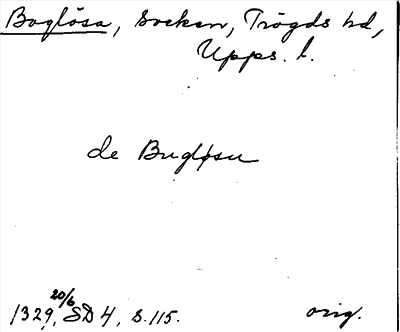 Boglösa, socken, Trögds hd,
Upps. l.
de Bugløsu
1329, 20/6 SD 4, s. 115. orig.